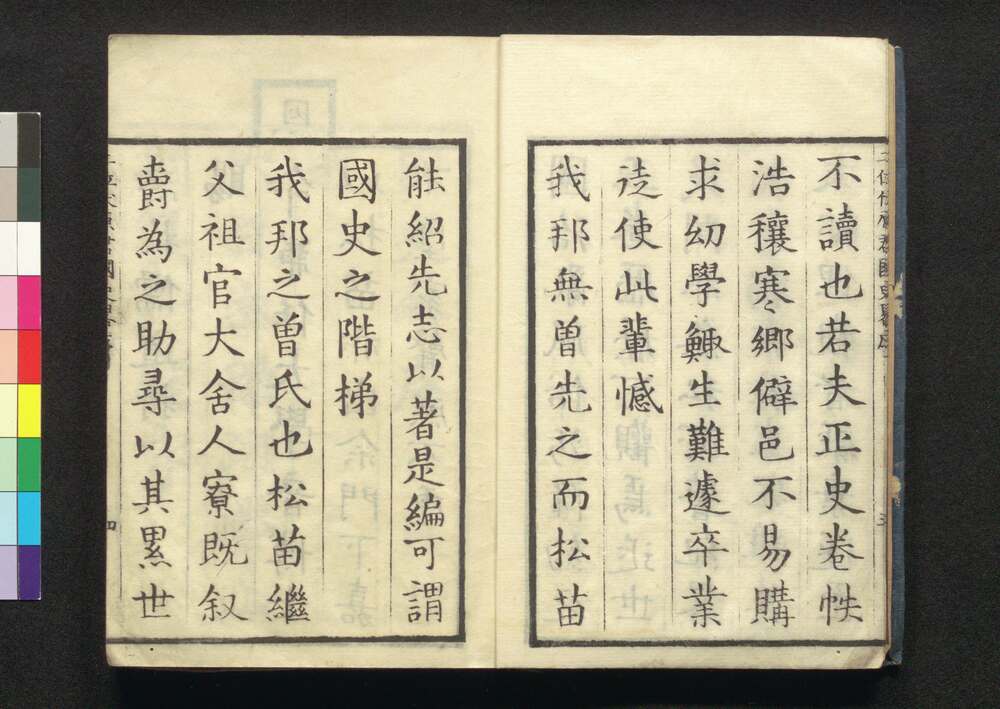 不讀也若夫正史卷帙
浩穰寒鄉僻邑不易購
求幼學鯫生難遽卒業
徒使此輩憾
我邦無曾先之而松苗
能紹先志以著是編可謂
國史之階梯
我邦之曾氏也松苗繼
父祖官大舍人寮既叙
爵為之助尋以其累世